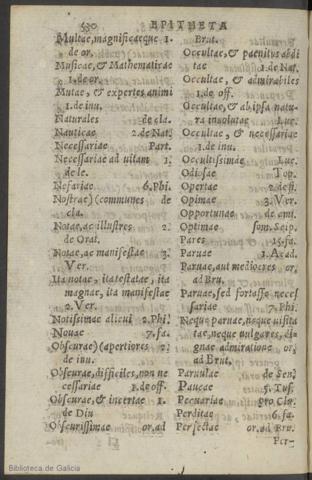 430 EPITHETA
Multae, magnificaeque 1.
de or.
Musicae, & Mathematicae
1. de or.
Mutae, & expertes animi
1. de inu.
Naturales de cla.
Nauticae 2. de Nat.
Necessariae Part.
Necessariae ad uitam 1.
de le.
Nefariae 6. Phi.
Nostrae) (communes de
cla.
Notae, ac illustres 2.
de Orat.
Notae, ac manifestae 3.
Ver.
Ita notae, ita testatae, ita
magnae, ita manifestae
2. Ver.
Notissimae alicui 2. Phi.
Nouae 7. fa.
Obscurae) (apertiores 2.
de inu.
Obscurae, difficiles, non ne
cessariae 1. de off.
Obscurae, & incertae 1.
de Diu
Obscurissimae or. ad
Brut.
Occultae, & paenitus abdi
tae 1. de Nat.
Occultae, & admirabiles
1. de off.
Occultae, & ab ipsa natu-
ra inuolutae Luc.
Occultae, & necessariae
1. de inu.
Occultissimae Luc.
Odiosae Top.
Opertae 2. de fi.
Opimae 3. Ver.
Opportunae de ami.
Optimae som. Scip.
Pares 15. fa.
Paruae 1. Acad.
Paruae, aut mediocres or.
ad Bru.
Paruae, sed fortasse neces
sariae 7. Phi.
Neque paruae, neque usita
tae, neque uulgares, di-
gnae admiratione or.
ad Brut.
Paruulae de Sen.
Paucae 5. Tus.
Pecuariae pro Clu.
Perditae 6. fa.
Perfectae or. ad Bru.
Per-
Biblioteca de Galicia